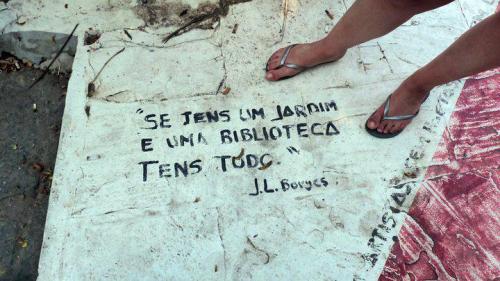 "SE TENS UM JARDIM
E UMA BIBLIOTECA
TENS TUDO."
J.L. Borges
ARTISTAS